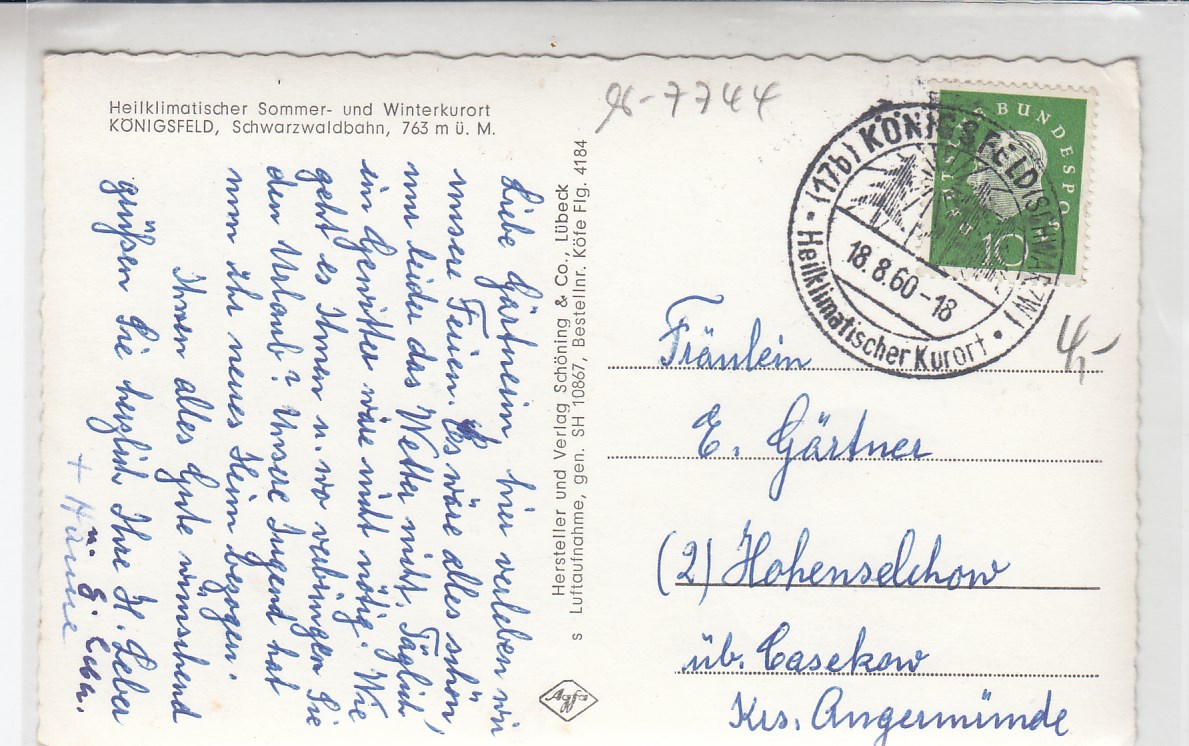 Heilklimatischer Sommer- und Winterkurort
KÖNIGSFELD, Schwarzwaldbahn, 763 m ü. M.
Liebe Gärtnerin hier verleben wir
unsere Ferien. Es wäre alles schön,
nur leider das Wetter nicht. Täglich
ein Gewitter wäre nicht nötig. Wie
geht es Ihnen u. wo verbringen Sie
den Urlaub? Unsere Jugend hat
nun ihr neues Heim bezogen.
Ihnen alles Gute wünschend
grüßen Sie herzlich Ihre H. Leber
u. E. Leber.
+ Hanne
Hersteller und Verlag Schöning & Co., Lübeck
s Luftaufnahme, gen. SH 10867, Bestellnr. Köfe Flg. 4184
Agfa
7744
DEUTSCHE BUNDESPOST
10
(17b) KÖNIGSFELD (SCHWARZW)
18.8.60-18
Heilklimatischer Kurort
Fräulein
E. Gärtner
(2) Hohenselchow
üb. Casekow
Krs. Angermünde